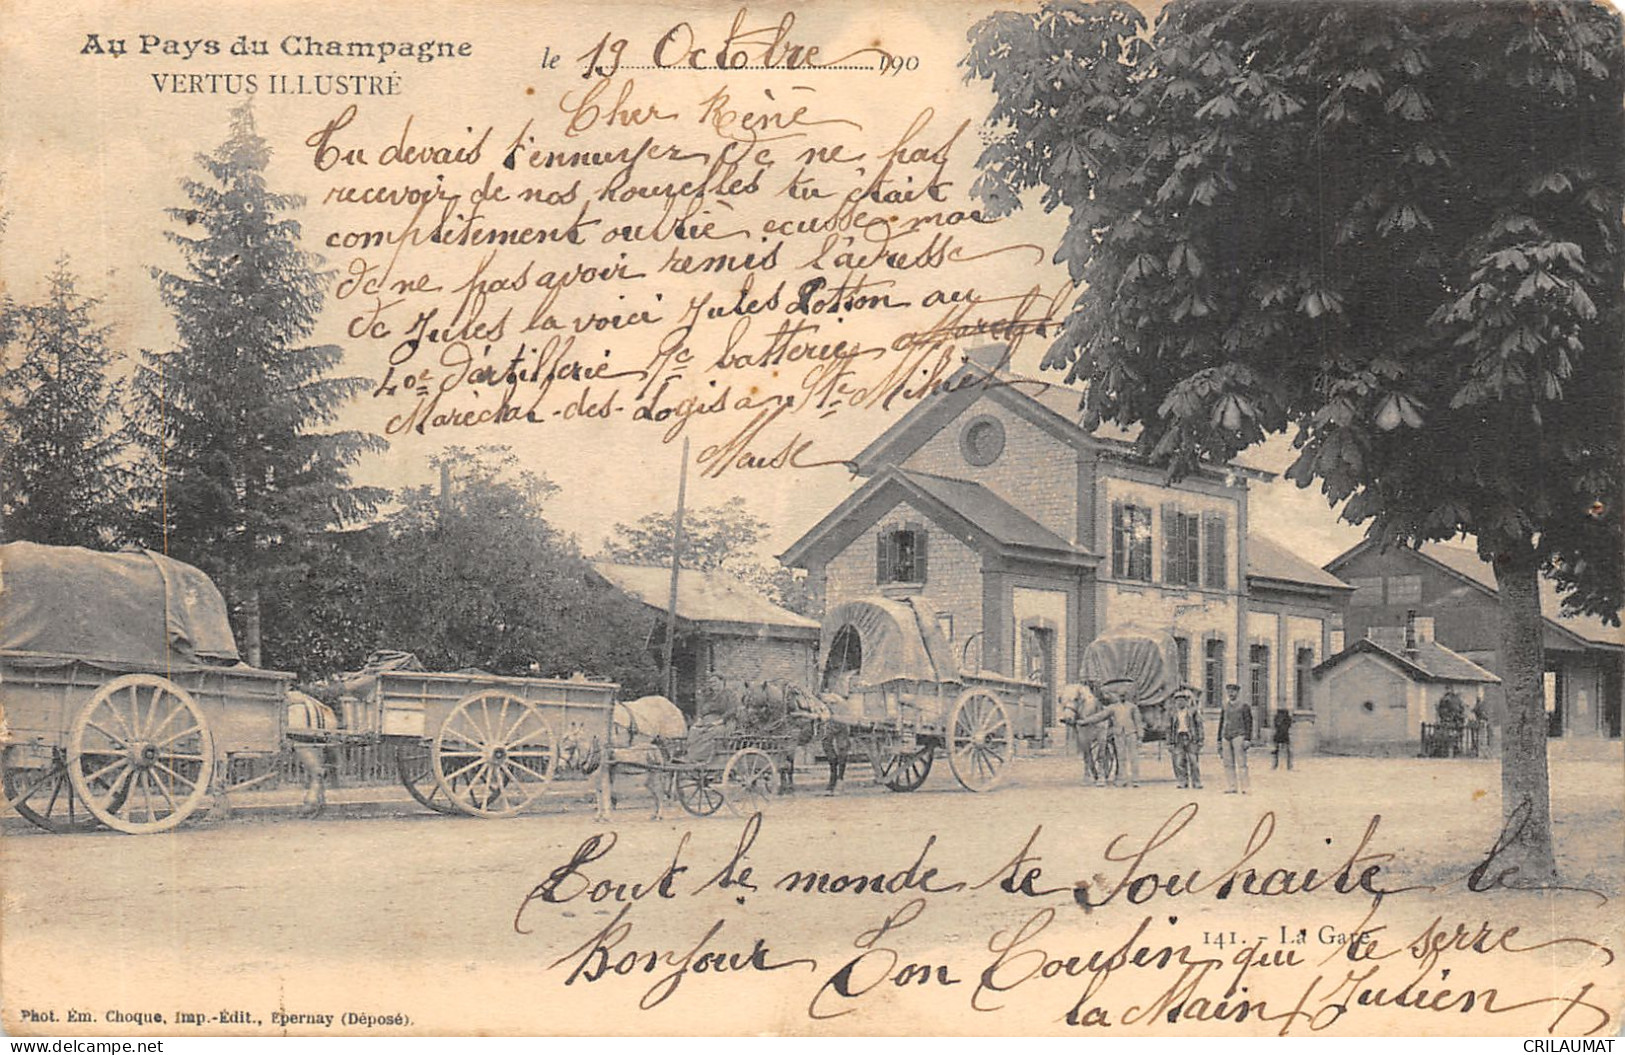 Au Pays du Champagne
VERTUS ILLUSTRÉ
le 19 Octobre 190
Cher Rèné
Tu devais t'ennuyer de ne pas
recevoir de nos nouvelles tu était
complètement oubliè ecusse moi
de ne pas avoir remis l'adresse
de Jules la voici Jules Potion au
40e d'artillerie 7e batterie
Maréchal-des-Logis a St Mihiel
Meuse
Tout le monde te Souhaite le
Bonjour Ton Cousin qui te serre
la Main Julien
141. - La Gare
Phot. Ém. Choque, Imp.-Édit., Epernay (Déposé).
CRILAUMAT